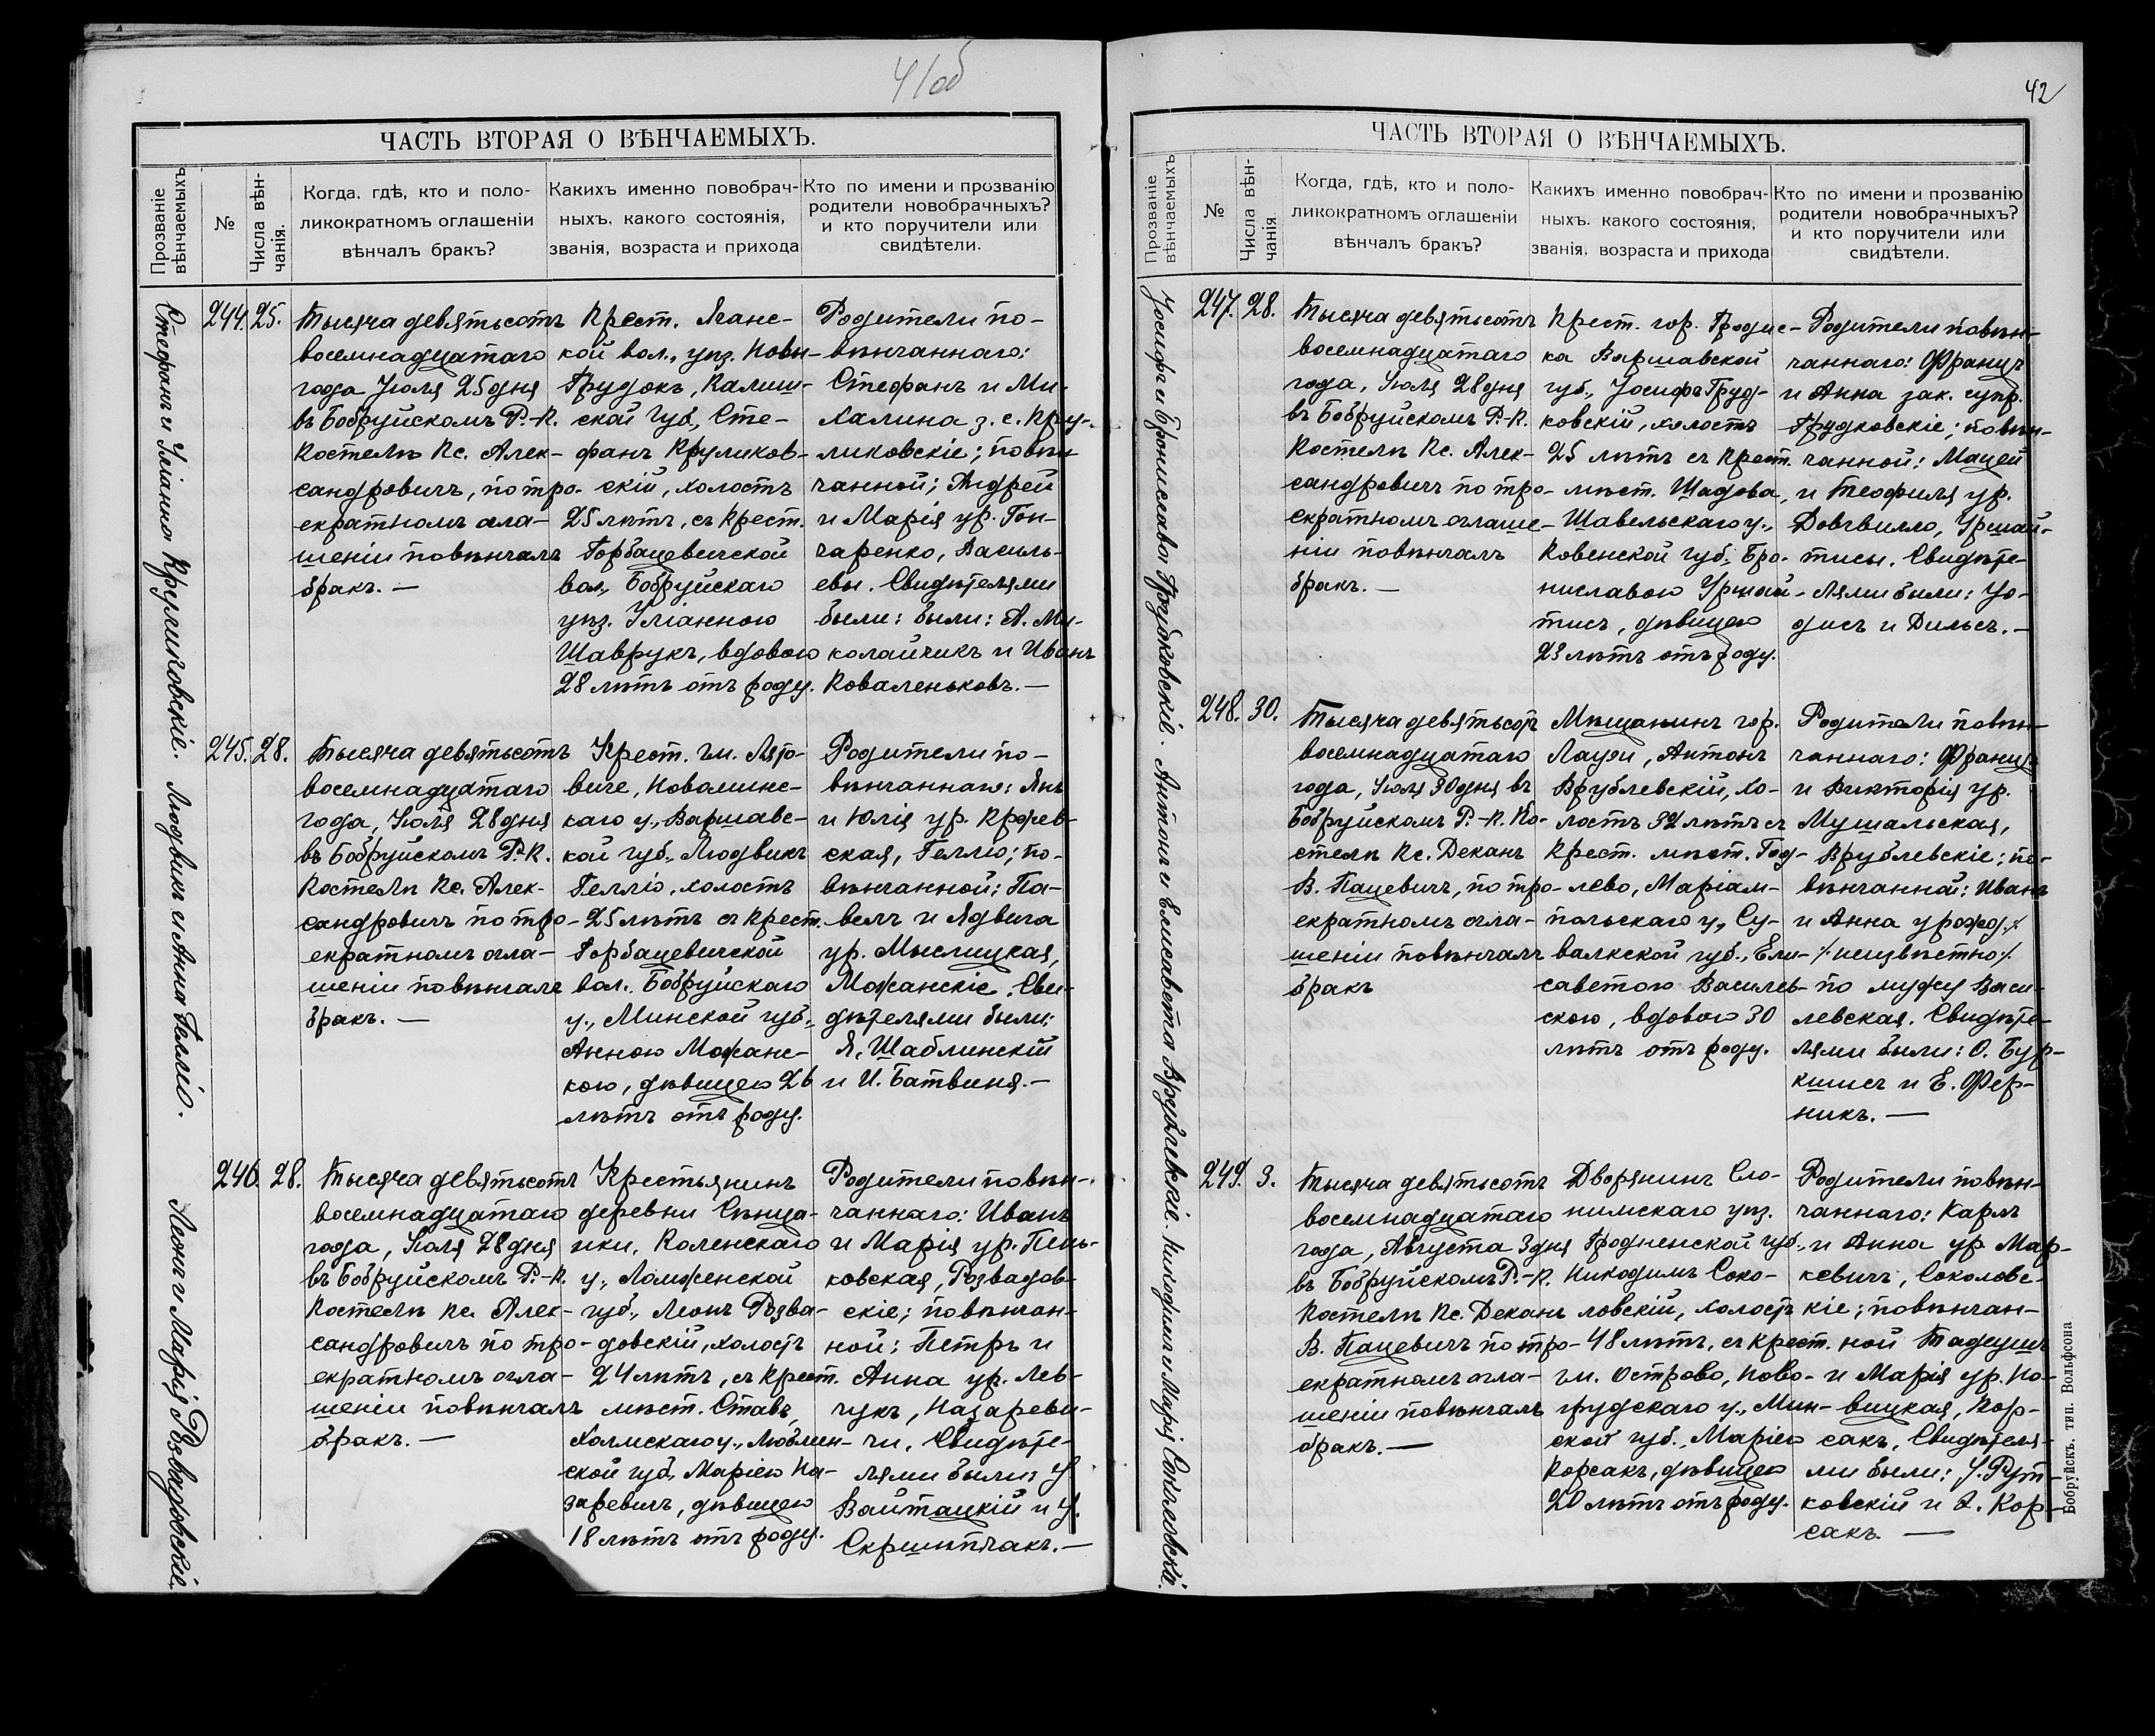 41об
ЧАСТЬ ВТОРАЯ О ВѢНЧАЕМЫХЪ.
Прозваніе
вѣнчаемыхъ
№
Числа вѣн-
чанія.
Когда, гдѣ, кто и поло-
ликократномъ оглашеніи
вѣнчалъ бракъ?
Какихъ именно повобрач-
ныхъ, какого состоянія,
званія, возраста и прихода
Кто по имени и прозванію
родители новобрачныхъ?
и кто поручители или
свидѣтели.
Стефанъ и Уліанна Круликовскіе.
244.
25.
Тысяча девятьсотъ
восемнадцатаго
года Іюля 25 дня
въ Бобруйскомъ Р.-К.
Костелѣ Кс. Алек-
сандровичъ, по тро-
екратномъ огла-
шеніи повѣнчалъ
бракъ. —
Крест.
кой вол., уѣз. Новы-
Грудокъ, Калиш-
ской Губ., Сте-
фанъ Круликов-
скій, холостъ
25 лѣтъ, съ крест.
Горбацевичской
вол., Бобруйскаго
уѣз. Уліанною
Шаврукъ, вдовою
28 лѣтъ отъ роду.
Родители по-
вѣнчаннаго:
Стефанъ и Ми-
халина з. с. Кру-
ликовскіе; повѣн
чанной; Андрей
и Марія ур. Гон-
чаренко, Василь-
евы. Свидѣтелями
были: были: А. Ми-
колайчикъ и Иванъ
Коваленьковъ. —
Людвикъ и Анна Гелліо.
245.
28.
Тысяча девятьсотъ
восемнадцатаго
года, Іюля 28 дня
въ Бобруйскомъ Р.-К.
Костелѣ Кс. Алек-
сандровичъ по тро-
екратномъ огла-
шеніи повѣнчалъ
бракъ. —
Крест. гм. Лято-
виче, Новоминс-
каго у., Варшавс-
кой губ., Людвикъ
Гелліо, холостъ
25 лѣтъ съ крест.
Горбацевичской
вол., Бобруйскаго
у., Минской губ.,
Анною Можанс-
кою, дѣвицею 26
лѣтъ отъ роду.
Родители по-
вѣнчаннаго: Янъ
и Юлія ур.
ская, Гелліо; по-
вѣнчанной: Па-
велъ и Ядвига
ур. Мыслицкая,
Можанскіе. Сви-
дѣтелями были:
Я. Шаблинскій
и И. Батвиня. —
Леонъ и Марія Розвадовскіе.
246.
28.
Тысяча девятьсотъ
восемнадцатаго
года, Іюля 28 дня
въ Бобруйскомъ Р.-К.
Костелѣ Кс. Алек-
сандровичъ по тро-
екратномъ огла-
шеніи повѣнчалъ
бракъ. —
Крестьянинъ
деревни Сѣнца-
ики, Коленскаго
у., Ломженской
губ., Леонъ Розва-
довскій, холостъ
24 лѣтъ, съ крест.
мѣст. Ставъ,
Холмскаго у., Люблин-
ской губ., Маріею На-
заревичъ, дѣвицею
18 лѣтъ отъ роду.
Родители повѣн-
чаннаго: Иванъ
и Марія ур. Пень-
ковская, Розвадов-
скіе; повѣнчан-
ной: Петръ и
Анна ур. Лев-
чукъ, Назареви-
чи. Свидѣте-
лями были: У
Войтацкій и У.
Скршипчакъ. —
42
ЧАСТЬ ВТОРАЯ О ВѢНЧАЕМЫХЪ.
Прозваніе
вѣнчаемыхъ
№
Числа вѣн-
чанія
Когда, гдѣ, кто и поло-
ликократномъ оглашеніи
вѣнчалъ бракъ?
Какихъ именно повобрач-
ныхъ. какого состоянія,
званія, возраста и прихода
Кто по имени и прозванію
родители новобрачныхъ?
и кто поручители или
свидѣтели.
Іосифъ и Брониславою Грудковскіе.
247.
28.
Тысяча девятьсотъ
восемнадцатаго
года, Іюля 28 дня
въ Бобруйскомъ Р.-К.
Костелѣ Кс. Алек-
сандровичъ по тро-
екратномъ оглаше-
ніи повѣнчалъ
бракъ. —
Крест. гор. Гродис-
ка Варшавской
губ., Іосифъ Груд-
ковскій, холостъ
25 лѣтъ съ крест.
мѣст. Шадова,
Шавельскаго у.,
Ковенской губ., Бро-
ниславою Уршай-
тисъ, дѣвицею
23 лѣтъ отъ роду.
Родители повѣн-
чаннаго: Францъ
и Анна зак. супр.
Грудковскіе; повѣн-
чанной: Мацей
и Теофиля ур.
Довгвилло, Уршай-
тисы. Свидѣте-
лями были: Уо-
дисъ и Дильсъ. —
Антонъ и Елисавета Врублевскіе.
248.
30.
Тысяча девятьсотъ
восемнадцатаго
года, Іюля 30 дня въ
Бобруйскомъ Р.-К. Ко-
стелѣ Кс. Деканъ
В. Пацевичъ, по тро-
екратномъ огла-
шеніи повѣнчалъ
бракъ
Мѣщанинъ гор.
Лодзи, Антонъ
Врублевскій, хо-
лостъ 32 лѣтъ съ
крест. мѣст. Год-
лево, Маріам-
польскаго у., Су-
валкской губ., Ели-
саветою Василев-
скою, вдовою 30
лѣтъ отъ роду.
Родители повѣн-
чаннаго: Францъ
и Викторія ур.
Мушальская,
Врублевскіе; по-
вѣнчанной: Иванъ
и Анна урожд./.
/.неизвѣстно/.
по мужу Васи-
левская. Свидѣте-
лями были: О. Бур-
кшисъ и Е. Фер-
никъ. —
Никодимъ и Марія Соколовскіе.
249.
3.
Тысяча девятьсотъ
восемнадцатаго
года, Августа 3 дня
въ Бобруйскомъ Р.-К.
Костелѣ Кс. Деканъ
В. Пацевичъ по тро-
екратномъ огла-
шеніи повѣнчалъ
бракъ. —
Дворянинъ Сло-
нимскаго уѣз.
Гродненской губ.,
Никодимъ Соко-
ловскій, холостъ
48 лѣтъ, съ крест.
гм. Острово, Ново-
грудскаго у., Мин-
ской губ., Маріею
Корсакъ, дѣвицею
20 лѣтъ отъ роду.
Родители повѣн-
чаннаго: Карлъ
и Анна ур. Мар-
кевичъ, Соколовс-
кіе; повѣнчан-
ной Тадеушъ
и Марія ур. Но-
вицкая, Кор-
сакъ, Свидѣтеля-
ми были: У. Рут-
ковскій и А. Кор-
сакъ. —
Бобруйскъ. тип. Вольфсона